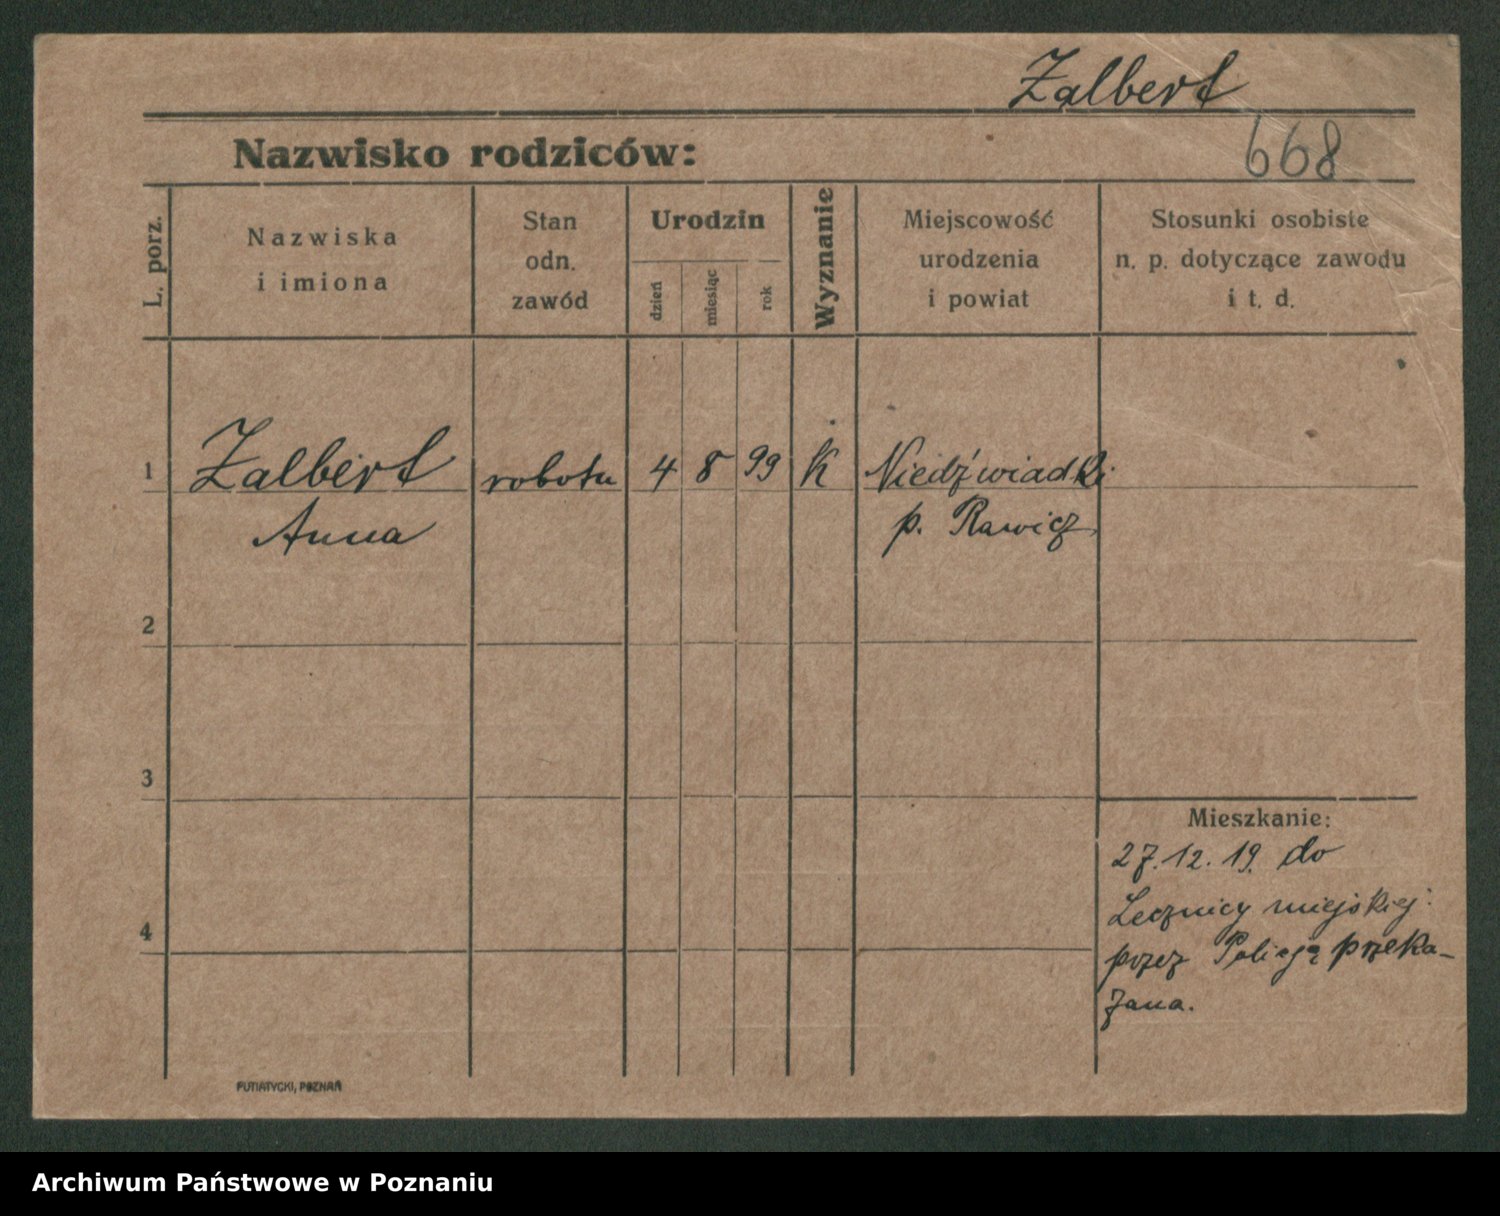 Żalbert
Nazwisko rodziców:
668
L. porz.
Nazwiska
i imiona
Stan
odn.
zawód
Urodzin
dzień
miesiąc
rok
Wyznanie
Miejscowość
urodzenia
i powiat
Stosunki osobiste
n. p. dotyczące zawodu
i t. d.
1
Żalbert
Anna
robotn
4
8
99
K
Niedźwiadki
p. Rawicz
2
3
4
Mieszkanie:
27.12.19. do
Lecznicy miejskiej
przez Policją przeka-
zana.
PUTIATYCKI, POZNAŃ
Archiwum Państwowe w Poznaniu